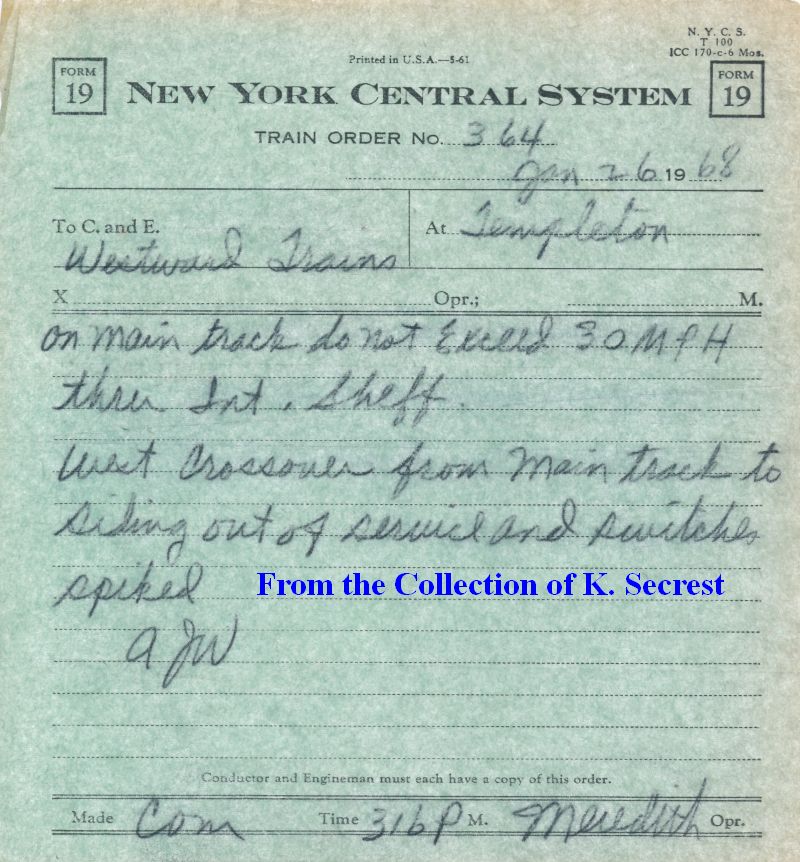 N. Y. C. S.
T 100
ICC 170-c-6 Mos.
Printed in U.S.A.—5-61
FORM 19
NEW YORK CENTRAL SYSTEM
FORM 19
TRAIN ORDER No. 364
Jan 26 19 68
To C. and E.
At Templeton
Westward Trains
X Opr.; M.
on main track do not Exceed 30 MPH
thru Int. Sheff.
West Crossover from Main track to
siding out of service and switches
spiked
From the Collection of K. Secrest
AJW
Conductor and Engineman must each have a copy of this order.
Made Com Time 316 P M. Meredith Opr.